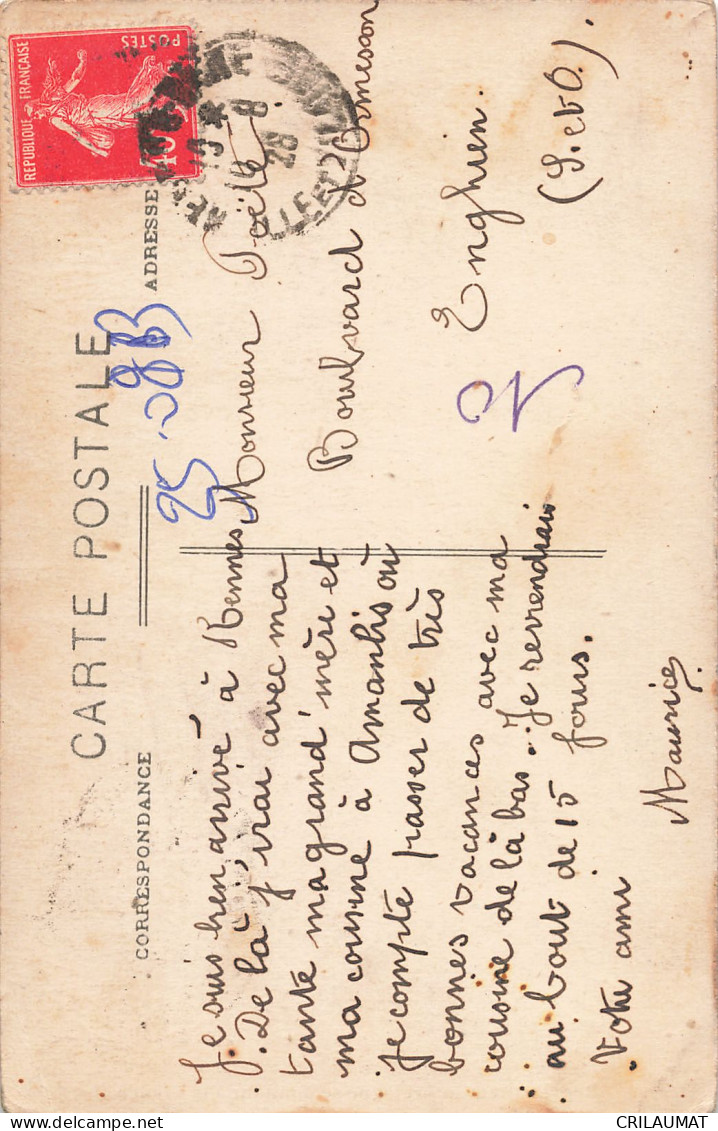 CARTE POSTALE
CORRESPONDANCE
ADRESSE
REPUBLIQUE FRANÇAISE
POSTES
10
8
28
25-08
Je suis bien arrivé à Rennes
De là j'irai avec ma
tante ma grand'mère et
ma cousine à Amanlis où
je compte passer de très
bonnes vacances avec ma
cousine de là bas. Je reviendrai
au bout de 15 jours.
Votre ami
Maurice
Monsieur Poëlle
Boulvard d'Ormesson
Enghien.
(S. et O).
CRILAUMAT